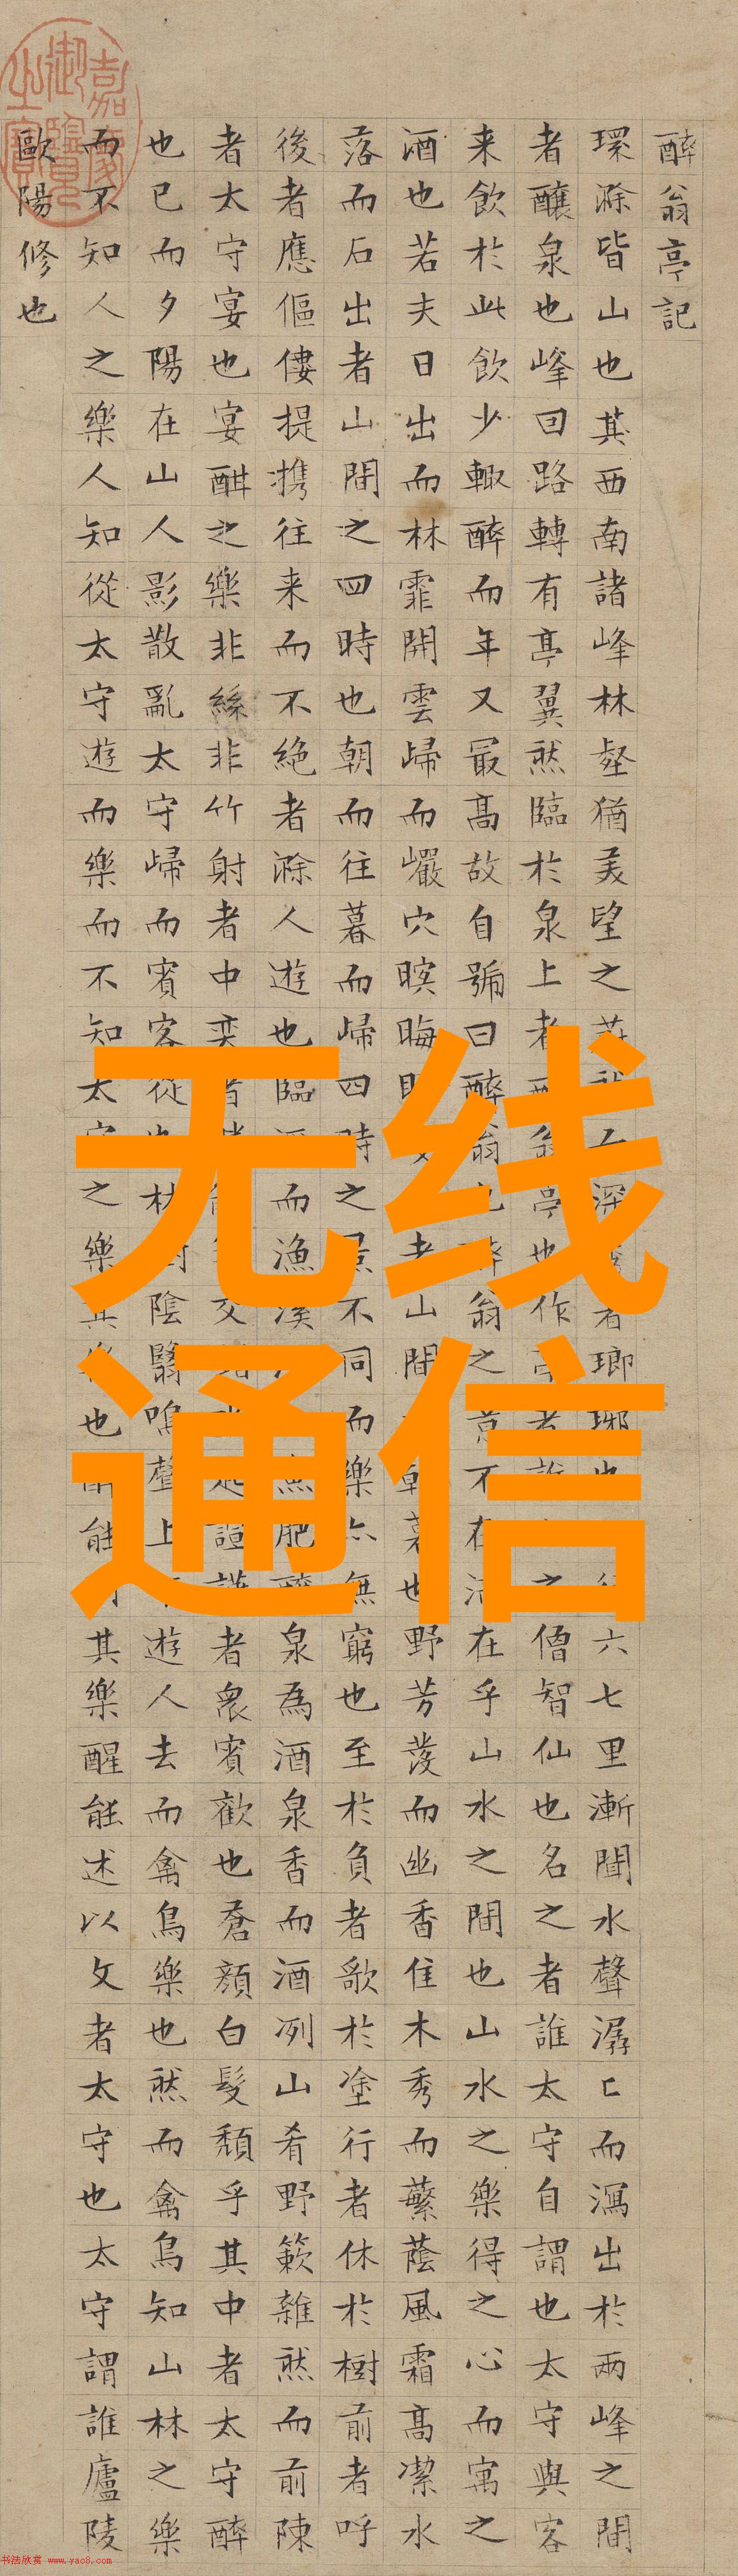 醉翁亭記
環滁皆山也其西南諸峰林壑猶美望之深者瑯琊六七里漸聞水聲潺〻而瀉出於兩峰之間
者釀泉也峰回路轉有亭翼然臨於泉上者亭也作之僧智仙也名之者誰太守自謂也太守與客
来飲於此飲少輒醉而年又最高故自號曰醉翁翁之意不在在乎山水之間也山水之樂得之心而寓之
酒也若夫日出而林霏開雲歸而巖穴暝晦者山間朝暮也野芳發而幽香佳木秀而蘩蔭風霜高潔水
落而石出者山間之四時也朝而往暮而歸四時之景不同而樂亦無窮也至於負者歌於塗行者休於樹前者呼
後者應傴僂提携往来而不絶者滁人遊也臨而漁溪魚肥釀泉為酒泉香而酒冽山肴野簌雜然而前陳
者太守宴也宴酣之樂非絲非竹射者中奕者交起諠譁者衆賓歡也蒼顔白髮頹乎其中者太守醉
也已而夕陽在山人影散亂太守歸而賓客從林陰翳鳴聲上遊人去而禽鳥樂也然而禽鳥知山林之樂
而不知人之樂人知從太守遊而樂而不知太之樂其也能其樂醒能述以文者太守也太守謂誰廬陵
歐陽修也
嘉慶御覽之寶
无线
通信
书法欣赏 www.yac8.com